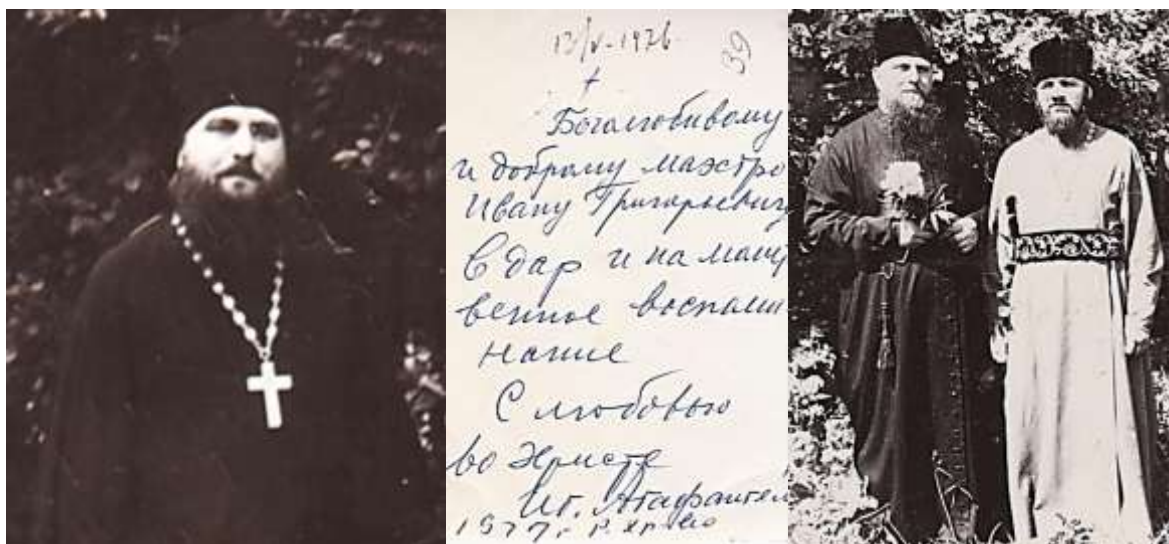 13/V-1976
39
Боголюбивому
и доброму маэстро
Ивану Григорьевичу
в дар и на молит
венное воспоми
нание
С любовью
во Христе
Иг. Агафангел
1977 г. Р. Хр-во